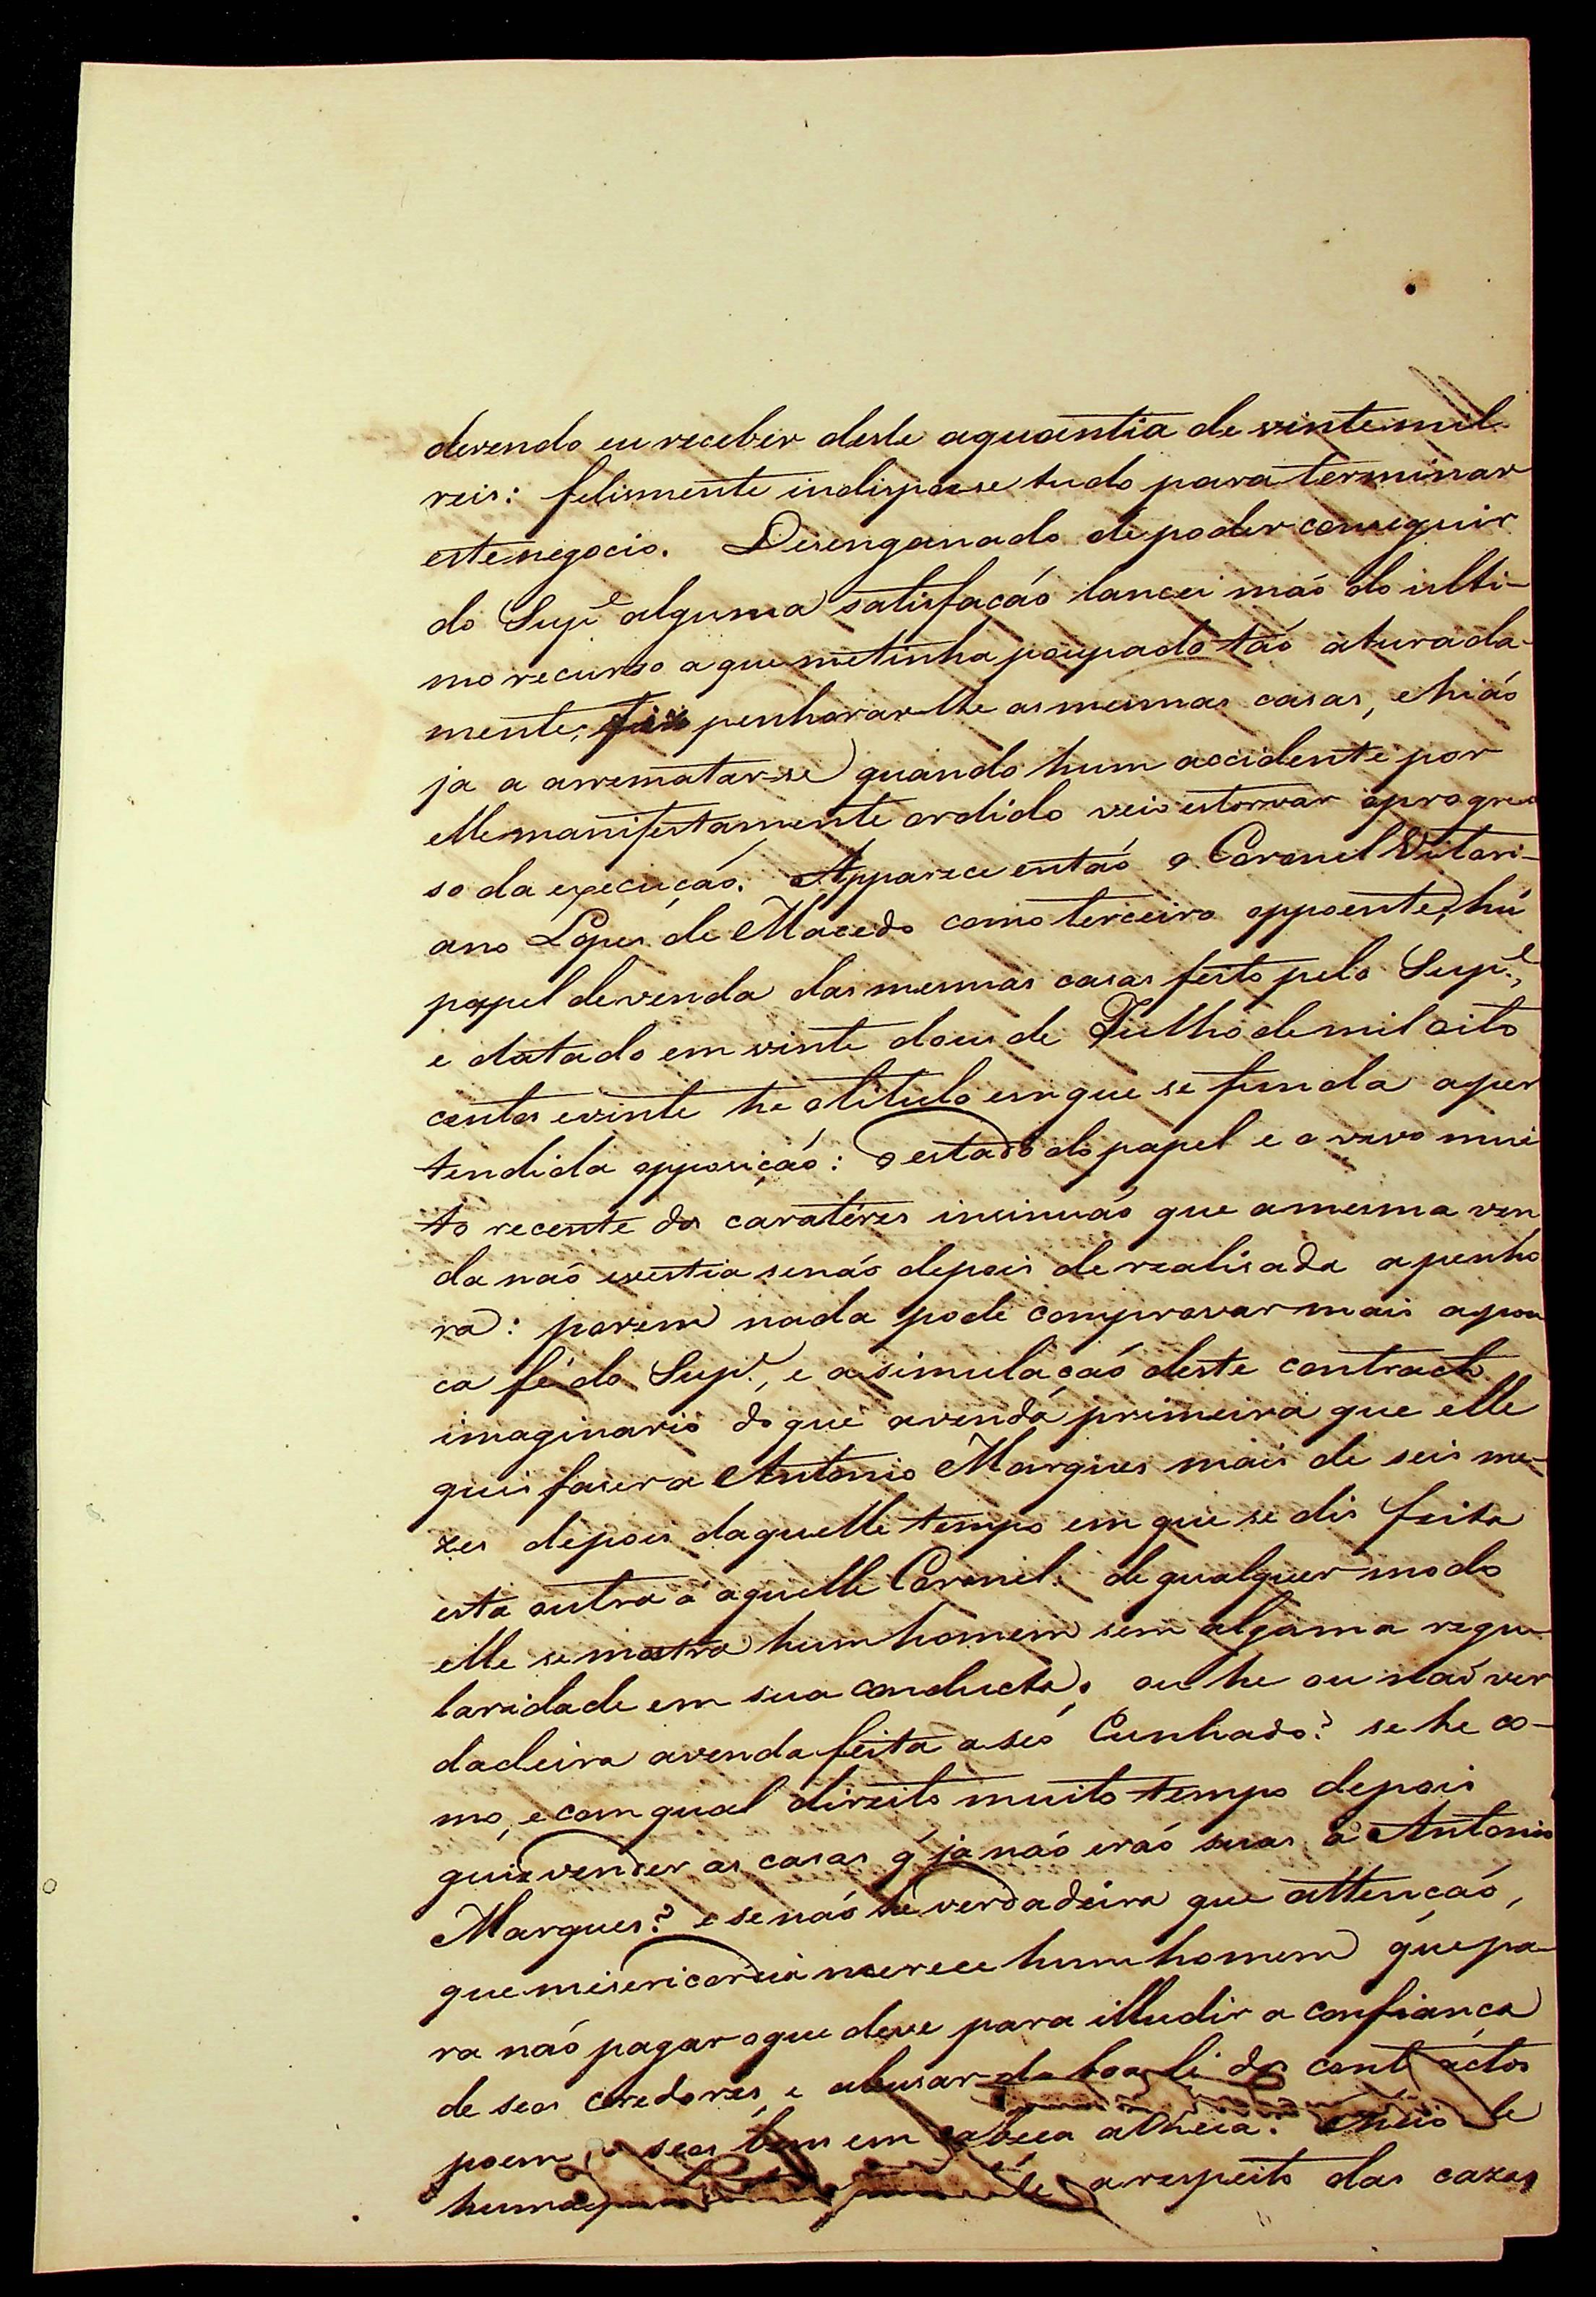 devendo eu receber deste aquantia de vinte mil
reis: felismente indispoe se tudo para terminar
este negocio. Desenganado de poder conseguir
do Supe. alguma satisfacáo lancei máo do ulti-
mo recurso a que me tinha poupado táo aturada-
mente; fiz penhorar-lhe as mesmas casas, e hiáo
ja a arrematar-se quando hum accidente por
elle manifestamente ordido veio estorvar oprogres
so da execuçáo. Apparece entáo o Coronel Vitori-
ano Lopes de Macedo como terceiro oppoente, hú
papel de venda das mesmas casas feito pelo Supe.,
e datado em vinte dous de Julho de mil oito
centos evinte he otitulo em que se funda a per
tendida opposicáo: o estado do papel e o vivo mui
to recente dos caratéres insinuáo que amesma ven
da náo exestia senáo depois de realisada apenho
ra: porem nada pode comprovar mais apou
ca fé do Supe., e a simulaçáo deste contracto
imaginario do que avenda primeira que elle
quis faser a Antonio Marques mais de seis me-
zes depois daquelle tempo em que se dis feita
esta outra á aquelle Coronel: de qualquer modo
elle se mostra hum homem sem alguma regu-
laridade em sua conducta; ou he ou náo ver
dadeira avenda feita a seo Cunhado? se he co-
mo, e com qual direito muito tempo depois
quiz vender as casas q' ja náo eráo suas, a Antonio
Marques? e se náo he verdadeira que attencáo,
que misericordia merece hum homem que pa-
ra náo pagar oque deve para illudir a confiança
de seos credores, e abusar da boa fé dos contractos
poem os seos bens em cabeça alheia? Meio de
huma a respeito das cazas